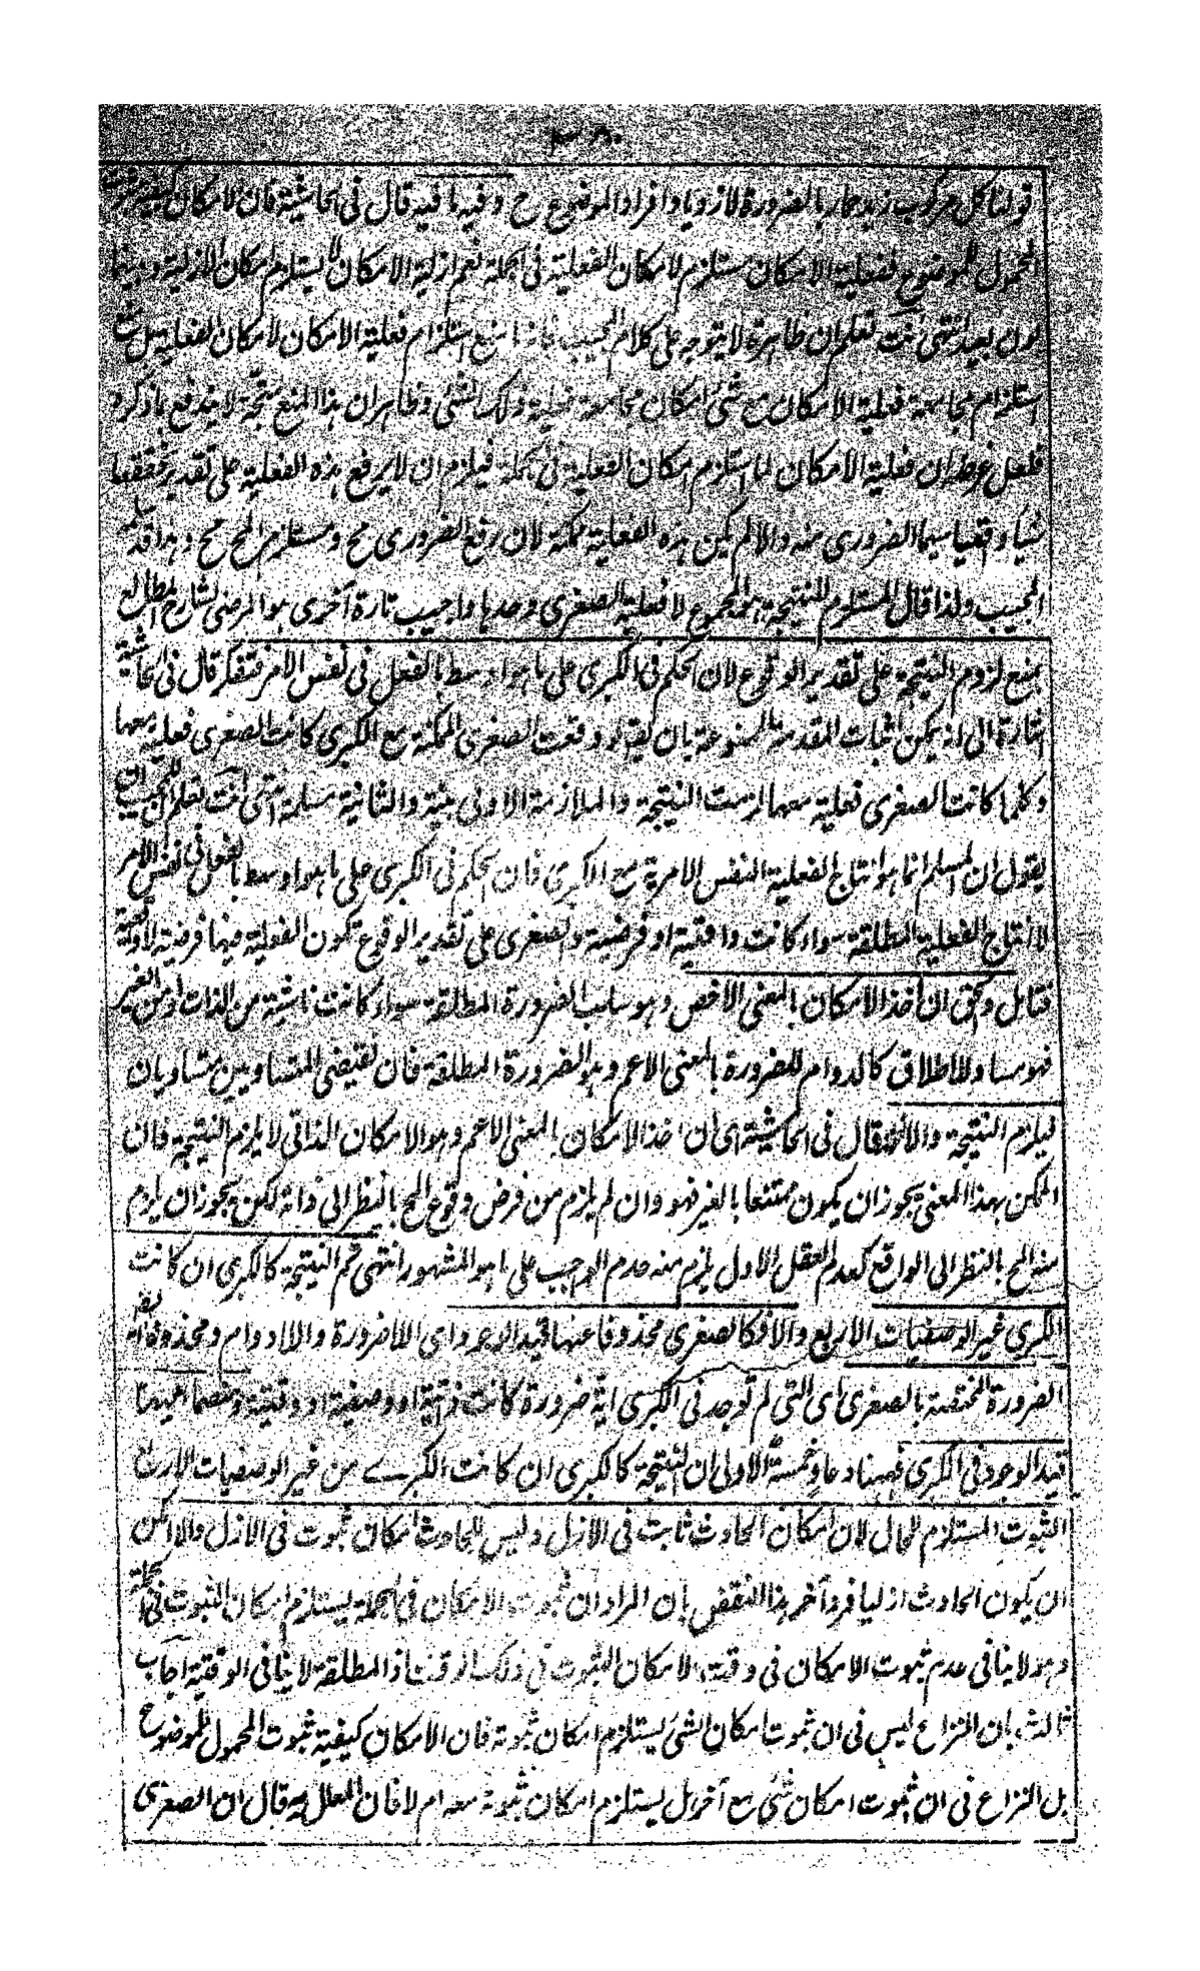 قولنا كل مركوب زيد حمار بالضرورة لازدياد افراد الموضوع ح وفيه ما فيه قال فى الحاشية فان الامكان كيفية
المحمول للموضوع ففعلية الامكان مستلزم لامكان الفعلية فى الجملة نعم ازلية الامكان لا يستلزم امكان الازلية وبينهما
بون بعيد انتهى انت تعلم ان ظاهره لا يتوجه على كلام المجيب فانه ما منع استلزام فعلية الامكان لامكان الفعلية بل منع
استلزام مجامعة فعلية الامكان مع شئ امكان مجامعة فعليته ولذلك الشئ وظاهر ان هذا المنع متجه لا يندفع بما ذكره
فلعل غرضه ان فعلية الامكان لما استلزم امكان الفعلية فى الجملة فيلزم ان لا يرفع هذه الفعلية على تقدير تحققها
شيئا واقعيا سيما الضرورى منه والا لم يكن هذه الفعلية ممكنة لان رفع الضرورى مح ومستلزم المح مح وهذا قد سلمه
المجيب ولذا قال المستلزم للنتيجة هو المجموع لا فعلية الصغرى وحدها واجيب تارة أخرى هو المرضى لشارح المطالع
بمنع لزوم النتيجة على تقدير الوقوع لان الحكم فى الكبرى على ما هو اوسط بالفعل فى نفس الامر فتفكر قال فى الحاشية
اشارة الى انه يمكن اثبات المقدمة الممنوعة بان يقال لو وقعت الصغرى الممكنة مع الكبرى كانت الصغرى فعلية معها
وكلما كانت الصغرى فعلية معها لزمت النتيجة والملازمة الاولى بينة والثانية مسلمة انتهى انت تعلم ان للمجيب ان
يقول ان المسلم انما هو انتاج الفعلية النفس الامرية مع الكبرى فان الحكم فى الكبرى على ما هو اوسط بالفعل فى نفس الامر
لا انتاج الفعلية المطلقة سواء كانت واقعية او فرضية والصغرى على تقدير الوقوع تكون الفعلية فيها فرضية لا واقعية
فتامل والحق ان اخذ الامكان بالمعنى الاخص وهو سلب الضرورة المطلقة سواء كانت ناشية من الذات او من الغير
فهو مساو للاطلاق كالدوام للضرورة بالمعنى الاعم وهو الضرورة المطلقة فان نقيضى المتساويين متساويان
فيلزم النتيجة والا فلا قال فى الحاشية اى ان اخذ الامكان بالمعنى الاعم وهو الامكان الذاتى لا يلزم النتيجة فان
الممكن بهذا المعنى يجوز ان يكون ممتنعا بالغير فهو وان لم يلزم من فرض وقوع المح بالنظر الى ذاته لكن يجوز ان يلزم
منه المح بالنظر الى الواقع كعدم العقل الاول يلزم منه عدم الواجب على ما هو المشهور انتهى ثم النتيجة كالكبرى ان كانت
الكبرى غير الوصفيات الاربع والا فكالصغرى محذوفا عنها قيد الوجود اى اللاضرورة واللادوام ومحذوفة ايضا
الضرورة المختصة بالصغرى اى التى لم توجد فى الكبرى اية ضرورة كانت ذاتية او وصفية او وقتية ومنضما اليها
قيد الوجود فى الكبرى فههنا دعاو خمسة الاولى ان النتيجة كالكبرى ان كانت الكبرى من غير الوصفيات الاربع
الثبوت المستلزم للمحال لان امكان الحادث ثابت فى الازل وليس للحادث امكان ثبوت فى الازل والا امكن
ان يكون الحادث ازليا فرد آخر هذا النقض بان المراد ان ثبوت الامكان فى الجملة يستلزم امكان الثبوت فى الجملة
وهو لا ينافى عدم ثبوت الامكان فى وقت لامكان الثبوت فى ذلك الوقت اذ المطلقة لا ينافى الوقتية اجاب
ثالث بان النزاع ليس فى ان ثبوت امكان الشئ يستلزم امكان ثبوته فان الامكان كيفية ثبوت المحمول للموضوع
بل النزاع فى ان ثبوت امكان شئ مع آخر هل يستلزم امكان ثبوته معه ام لا فان المعلل به قال ان الصغرى